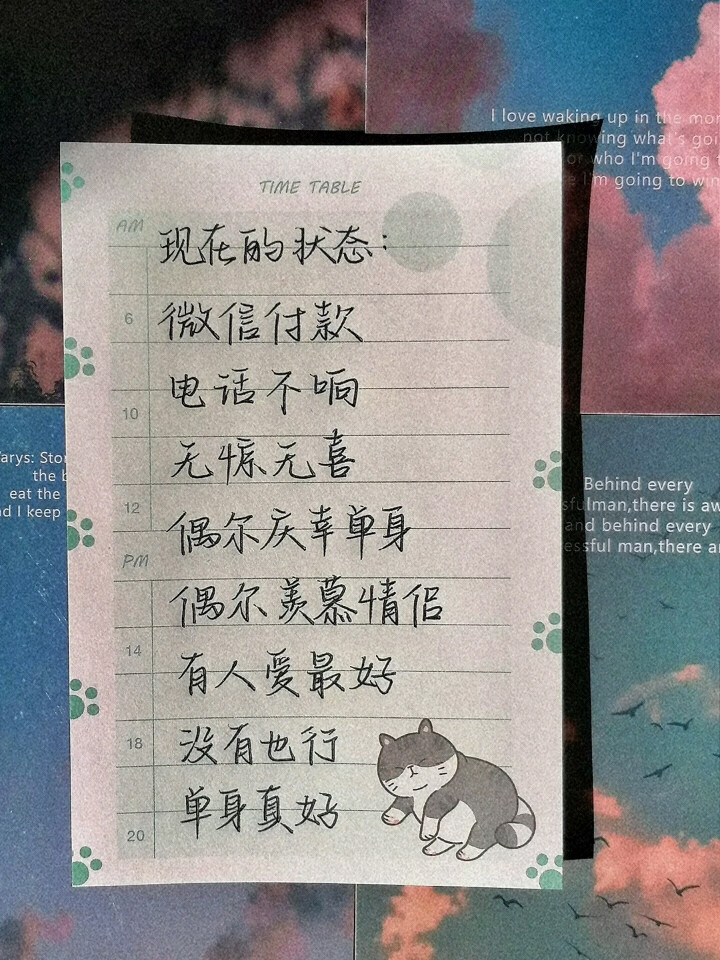 I love waking up in the mor
not knowing what's goi
or who I'm going t
I'm going to win
TIME TABLE
AM
现在的状态：
6
微信付款
电话不响
10
无惊无喜
12
偶尔庆幸单身
PM
偶尔羡慕情侣
14
有人爱最好
18
没有也行
20
单身真好
arys: Stor
the b
eat the
nd I keep
Behind every
sfulman,there is aw
and behind every
essful man,there ar